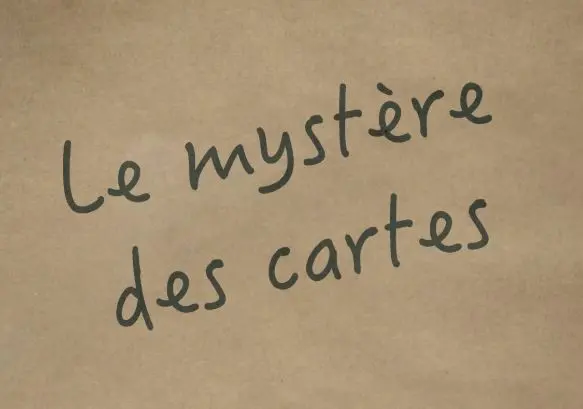 Le mystère
des cartes